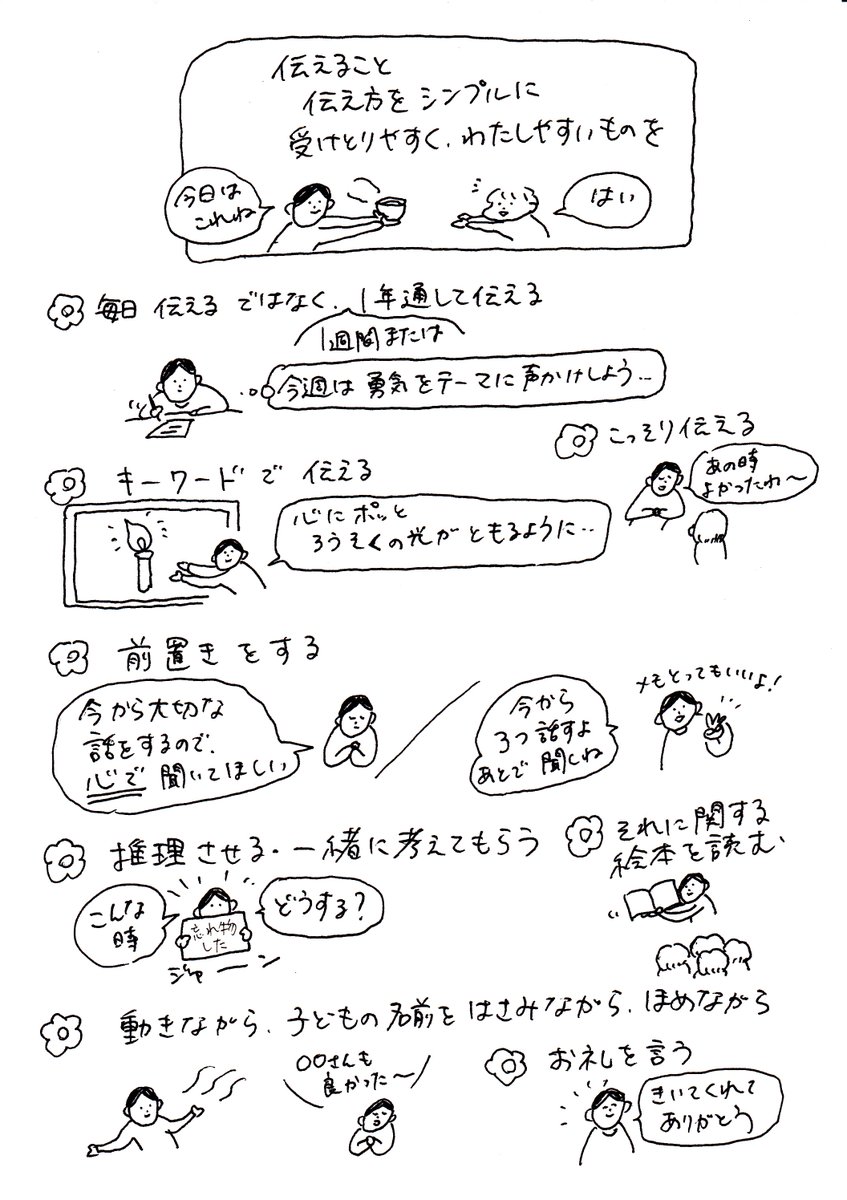 伝えること
伝え方を シンプルに
受けとりやすく、わたしやすいものを
今日は
これね
はい
毎日 伝える ではなく、1年通して伝える
1週間または
今週は 勇気をテーマに声かけしよう…
こっそり伝える
あの時
よかったわ〜
キーワードで 伝える
心にポッと
ろうそくの光がともるように…
前置きをする
今から大切な
話をするので、
心で 聞いてほしい
今から
3つ話すよ
あとで 聞くね
メモとってもいいよ!
推理させる・一緒に考えてもらう
こんな
時
忘れ物
した
どうする?
ジャーーン
それに関する
絵本を読む、
動きながら、子どもの名前をはさみながら、ほめながら
〇〇さんも
良かった〜
お礼を言う
きいてくれて
ありがとう